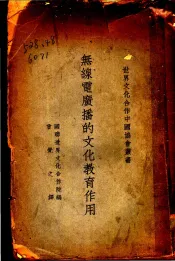 世界文化合作中國協會叢書
無線電廣播的文化教育作用
國際世界文化合作院編
曾覺之譯
6071